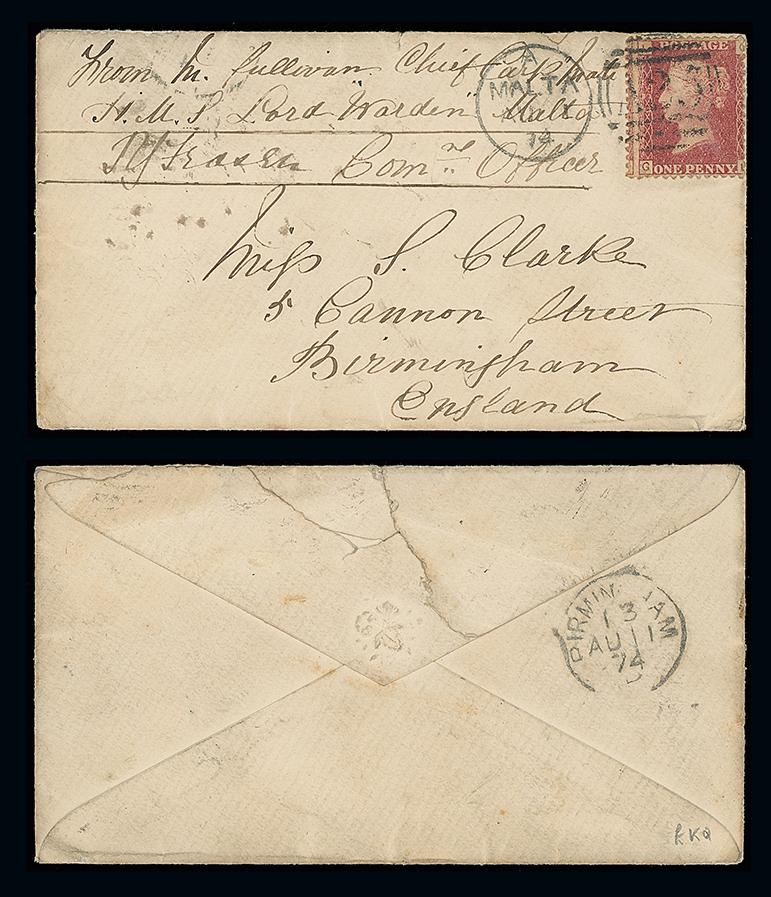 From M. Sullivan Chief Carp
H. M. S. Lord Warden" Malta
Com.ng Officer
A
MALTA
74
POSTAGE
G ONE PENNY
Miss S. Clarke
5 Cannon Street
Birmingham
England
BIRMINGHAM
13
AU 11
74